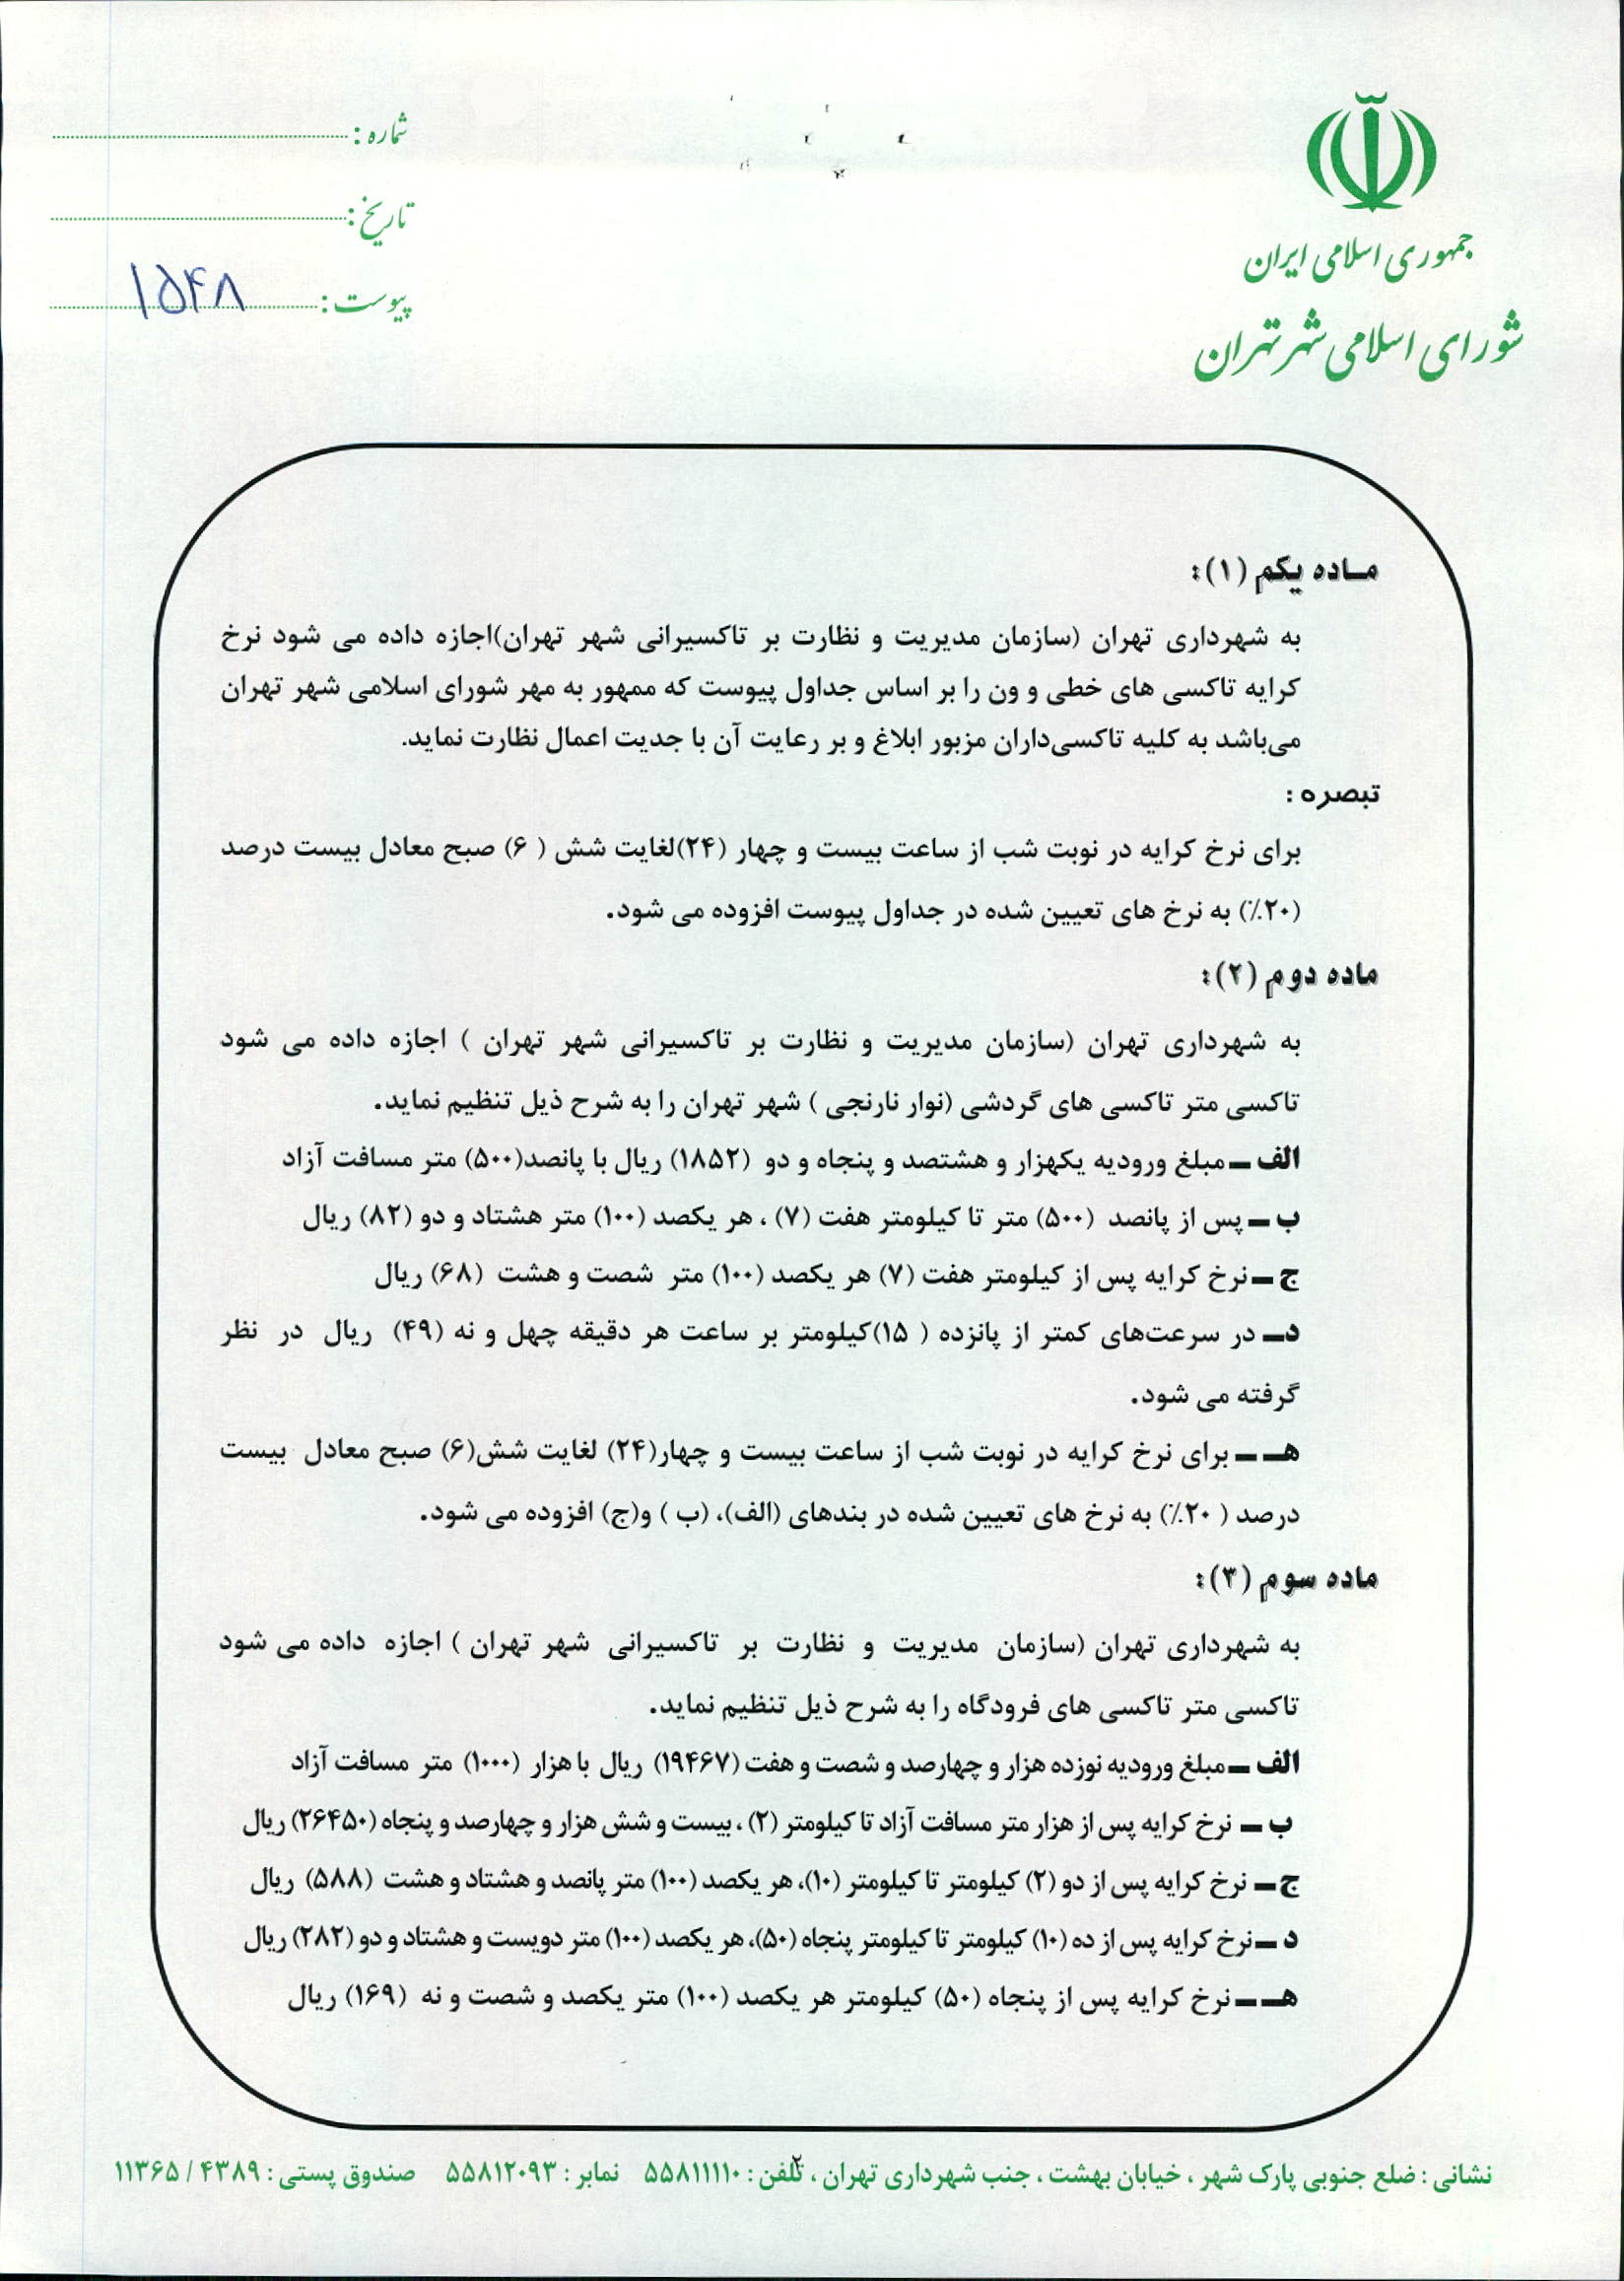 جمهوری اسلامی ایران
شورای اسلامی شهر تهران
شماره :
تاریخ :
پیوست : ۱۵۴۸
مــاده یکم (۱):
به شهرداری تهران (سازمان مدیریت و نظارت بر تاکسیرانی شهر تهران)اجازه داده می شود نرخ
کرایه تاکسی های خطی و ون را بر اساس جداول پیوست که ممهور به مهر شورای اسلامی شهر تهران
می‌باشد به کلیه تاکسی‌داران مزبور ابلاغ و بر رعایت آن با جدیت اعمال نظارت نماید.
تبصره :
برای نرخ کرایه در نوبت شب از ساعت بیست و چهار (۲۴)لغایت شش ( ۶) صبح معادل بیست درصد
(۲۰٪) به نرخ های تعیین شده در جداول پیوست افزوده می شود.
ماده دوم (۲):
به شهرداری تهران (سازمان مدیریت و نظارت بر تاکسیرانی شهر تهران ) اجازه داده می شود
تاکسی متر تاکسی های گردشی (نوار نارنجی ) شهر تهران را به شرح ذیل تنظیم نماید.
الف ـ مبلغ ورودیه یکهزار و هشتصد و پنجاه و دو (۱۸۵۲) ریال با پانصد(۵۰۰) متر مسافت آزاد
ب ـ پس از پانصد (۵۰۰) متر تا کیلومتر هفت (۷) ، هر یکصد (۱۰۰) متر هشتاد و دو (۸۲) ریال
ج ـ نرخ کرایه پس از کیلومتر هفت (۷) هر یکصد (۱۰۰) متر شصت و هشت (۶۸) ریال
د ـ در سرعت‌های کمتر از پانزده ( ۱۵)کیلومتر بر ساعت هر دقیقه چهل و نه (۴۹) ریال در نظر
گرفته می شود.
هـ ـ برای نرخ کرایه در نوبت شب از ساعت بیست و چهار(۲۴) لغایت شش(۶) صبح معادل بیست
درصد ( ۲۰٪) به نرخ های تعیین شده در بندهای (الف)، (ب ) و(ج) افزوده می شود.
ماده سوم (۳):
به شهرداری تهران (سازمان مدیریت و نظارت بر تاکسیرانی شهر تهران ) اجازه داده می شود
تاکسی متر تاکسی های فرودگاه را به شرح ذیل تنظیم نماید.
الف ـ مبلغ ورودیه نوزده هزار و چهارصد و شصت و هفت (۱۹۴۶۷) ریال با هزار (۱۰۰۰) متر مسافت آزاد
ب ـ نرخ کرایه پس از هزار متر مسافت آزاد تا کیلومتر (۲) ، بیست و شش هزار و چهارصد و پنجاه (۲۶۴۵۰) ریال
ج ـ نرخ کرایه پس از دو (۲) کیلومتر تا کیلومتر (۱۰)، هر یکصد (۱۰۰) متر پانصد و هشتاد و هشت (۵۸۸) ریال
د ـ نرخ کرایه پس از ده (۱۰) کیلومتر تا کیلومتر پنجاه (۵۰)، هر یکصد (۱۰۰) متر دویست و هشتاد و دو (۲۸۲) ریال
هـ ـ نرخ کرایه پس از پنجاه (۵۰) کیلومتر هر یکصد (۱۰۰) متر یکصد و شصت و نه (۱۶۹) ریال
۲
نشانی : ضلع جنوبی پارک شهر ، خیابان بهشت ، جنب شهرداری تهران ، تلفن : ۵۵۸۱۱۱۱۰ نمابر : ۵۵۸۱۲۰۹۳ صندوق پستی : ۴۳۸۹ / ۱۱۳۶۵